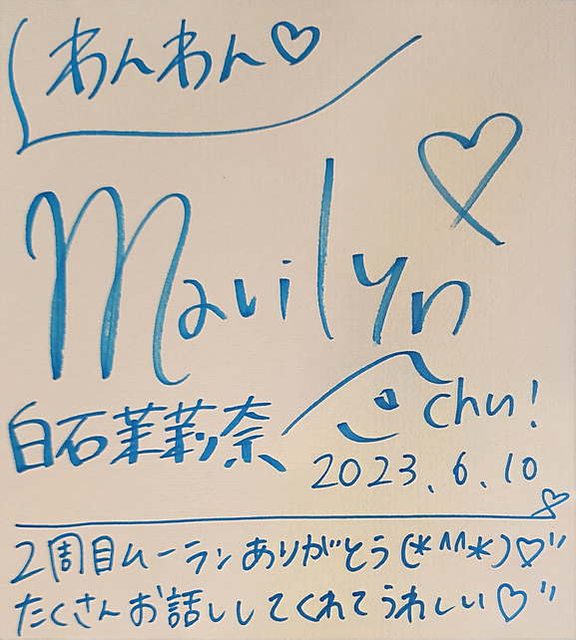 わんわん♡
Marilyn ♡
白石茉莉奈
chu!
2023.6.10
2周目ムーランありがとう(*^^*)♡"
たくさんお話ししてくれてうれしい♡"